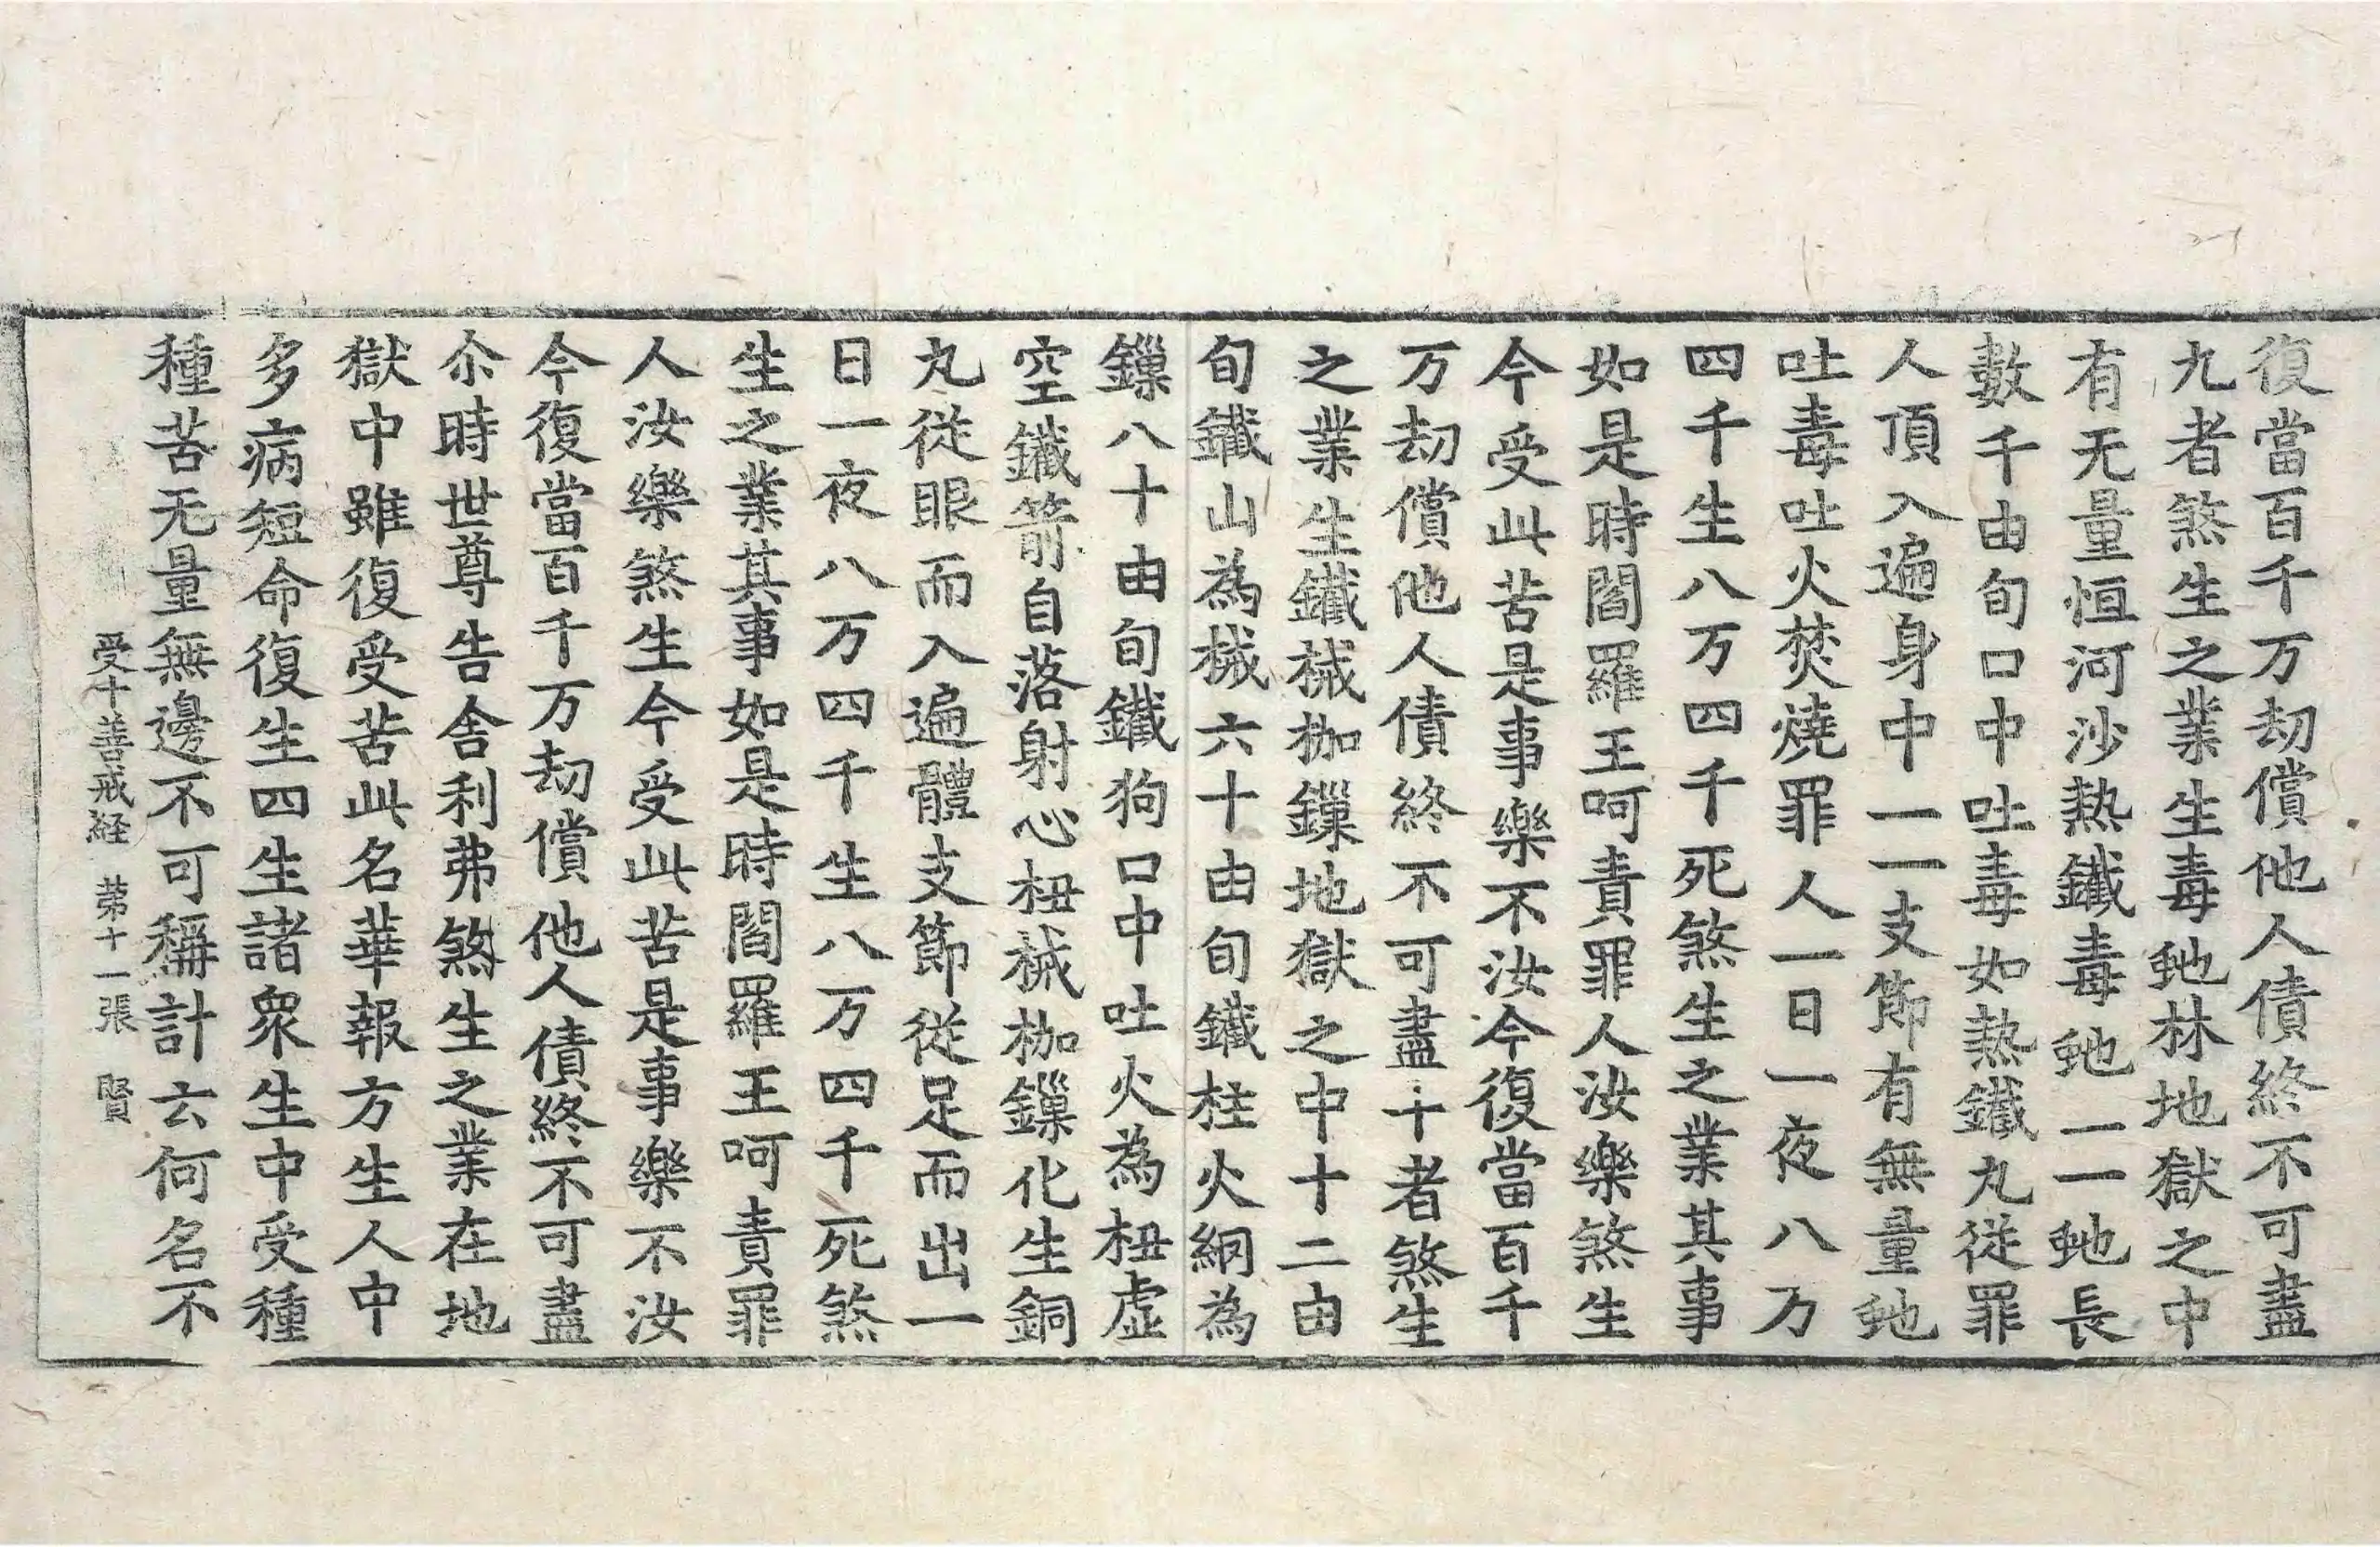 復當百千万劫償他人債終不可盡
九者煞生之業生毒虵林地獄之中
有无量恒河沙熱鐵毒虵一一虵長
數千由旬口中吐毒如熱鐵丸從罪
人頂入遍身中一一支節有無量虵
吐毒吐火焚燒罪人一日一夜八万
四千生八万四千死煞生之業其事
如是時閻羅王呵責罪人汝樂煞生
今受此苦是事樂不汝今復當百千
万劫償他人債終不可盡十者煞生
之業生鐵械枷鏁地獄之中十二由
旬鐵山為械六十由旬鐵柱火網為
鏁八十由旬鐵狗口中吐火為杻虛
空鐵箭自落射心杻械枷鏁化生銅
丸從眼而入遍體支節從足而出一
日一夜八万四千生八万四千死煞
生之業其事如是時閻羅王呵責罪
人汝樂煞生今受此苦是事樂不汝
今復當百千万劫償他人債終不可盡
尒時世尊告舍利弗煞生之業在地
獄中雖復受苦此名華報方生人中
多病短命復生四生諸眾生中受種
種苦无量無邊不可稱計云何名不
受十善戒経　苐十一張　賢